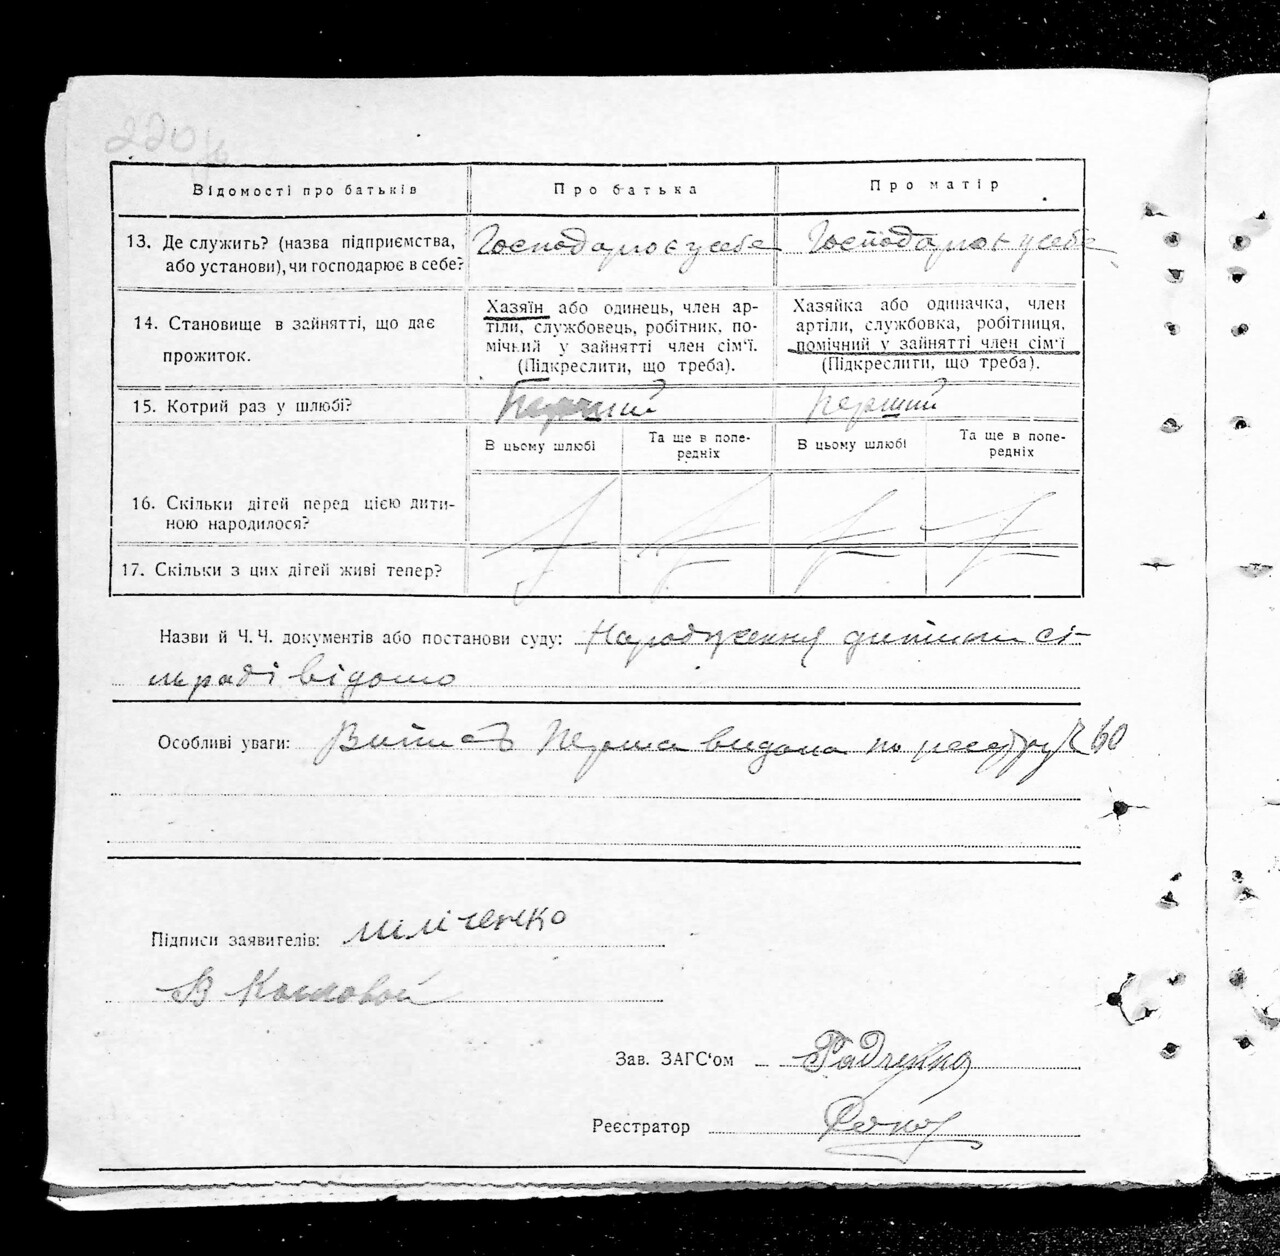 220
Відомості про батьків
Про батька
Про матір
13. Де служить? (назва підприємства,
або установи), чи господарює в себе?
Господарює у себе
Господарює у себе
14. Становище в зайнятті, що дає
прожиток.
Хазяїн або одинець, член ар-
тіли, службовець, робітник, по-
мічний у зайнятті член сім'ї.
(Підкреслити, що треба).
Хазяйка або одиначка, член
артіли, службовка, робітниця,
помічний у зайнятті член сім'ї
(Підкреслити, що треба).
15. Котрий раз у шлюбі?
Перший
Перший
В цьому шлюбі
Та ще в попе-
редніх
В цьому шлюбі
Та ще в попе-
редніх
16. Скільки дітей перед цією дити-
ною народилося?
17. Скільки з цих дітей живі тепер?
Назви й Ч. Ч. документів або постанови суду: Народження дитини сі-
льраді відомо
Особливі уваги: Випись перша видана по реєстру 60
Підписи заявителів: Міліченко
В
Зав. ЗАГС'ом Радченко
Реєстратор